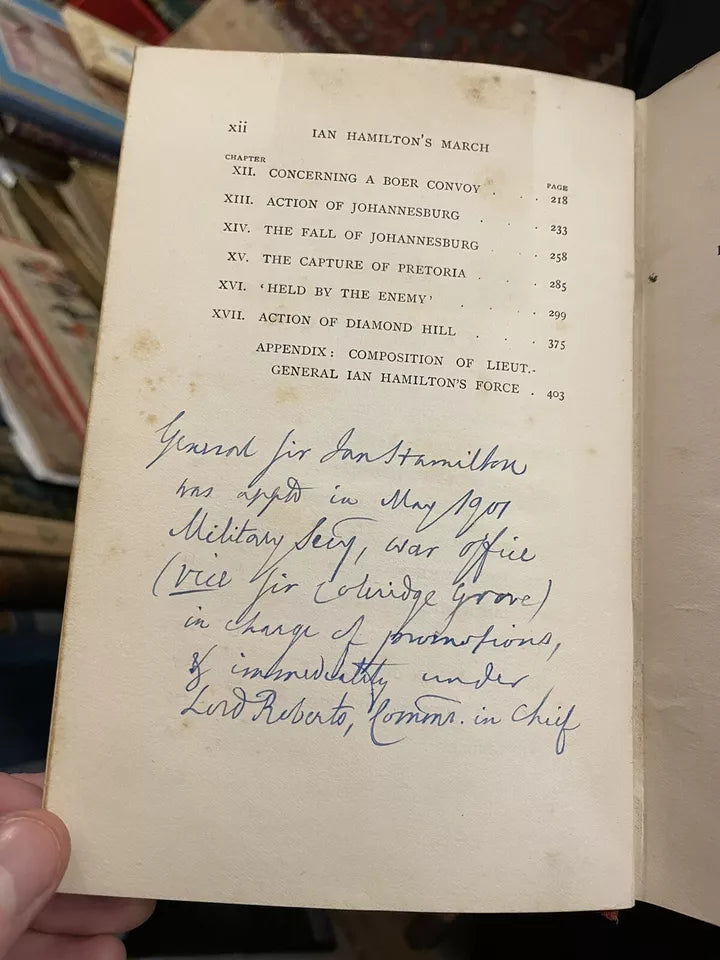 xii IAN HAMILTON'S MARCH
CHAPTER PAGE
XII. CONCERNING A BOER CONVOY . . . 218
XIII. ACTION OF JOHANNESBURG . . . 233
XIV. THE FALL OF JOHANNESBURG . . 258
XV. THE CAPTURE OF PRETORIA . . . 285
XVI. 'HELD BY THE ENEMY' . . . 299
XVII. ACTION OF DIAMOND HILL . . . 375
APPENDIX: COMPOSITION OF LIEUT.-
GENERAL IAN HAMILTON'S FORCE . 403
General Sir Ian Hamilton
was apptd in May 1901
Military Secy, war office
(vice Sir Coleridge Grove)
in charge of promotions,
& immediately under
Lord Roberts, Commr. in Chief